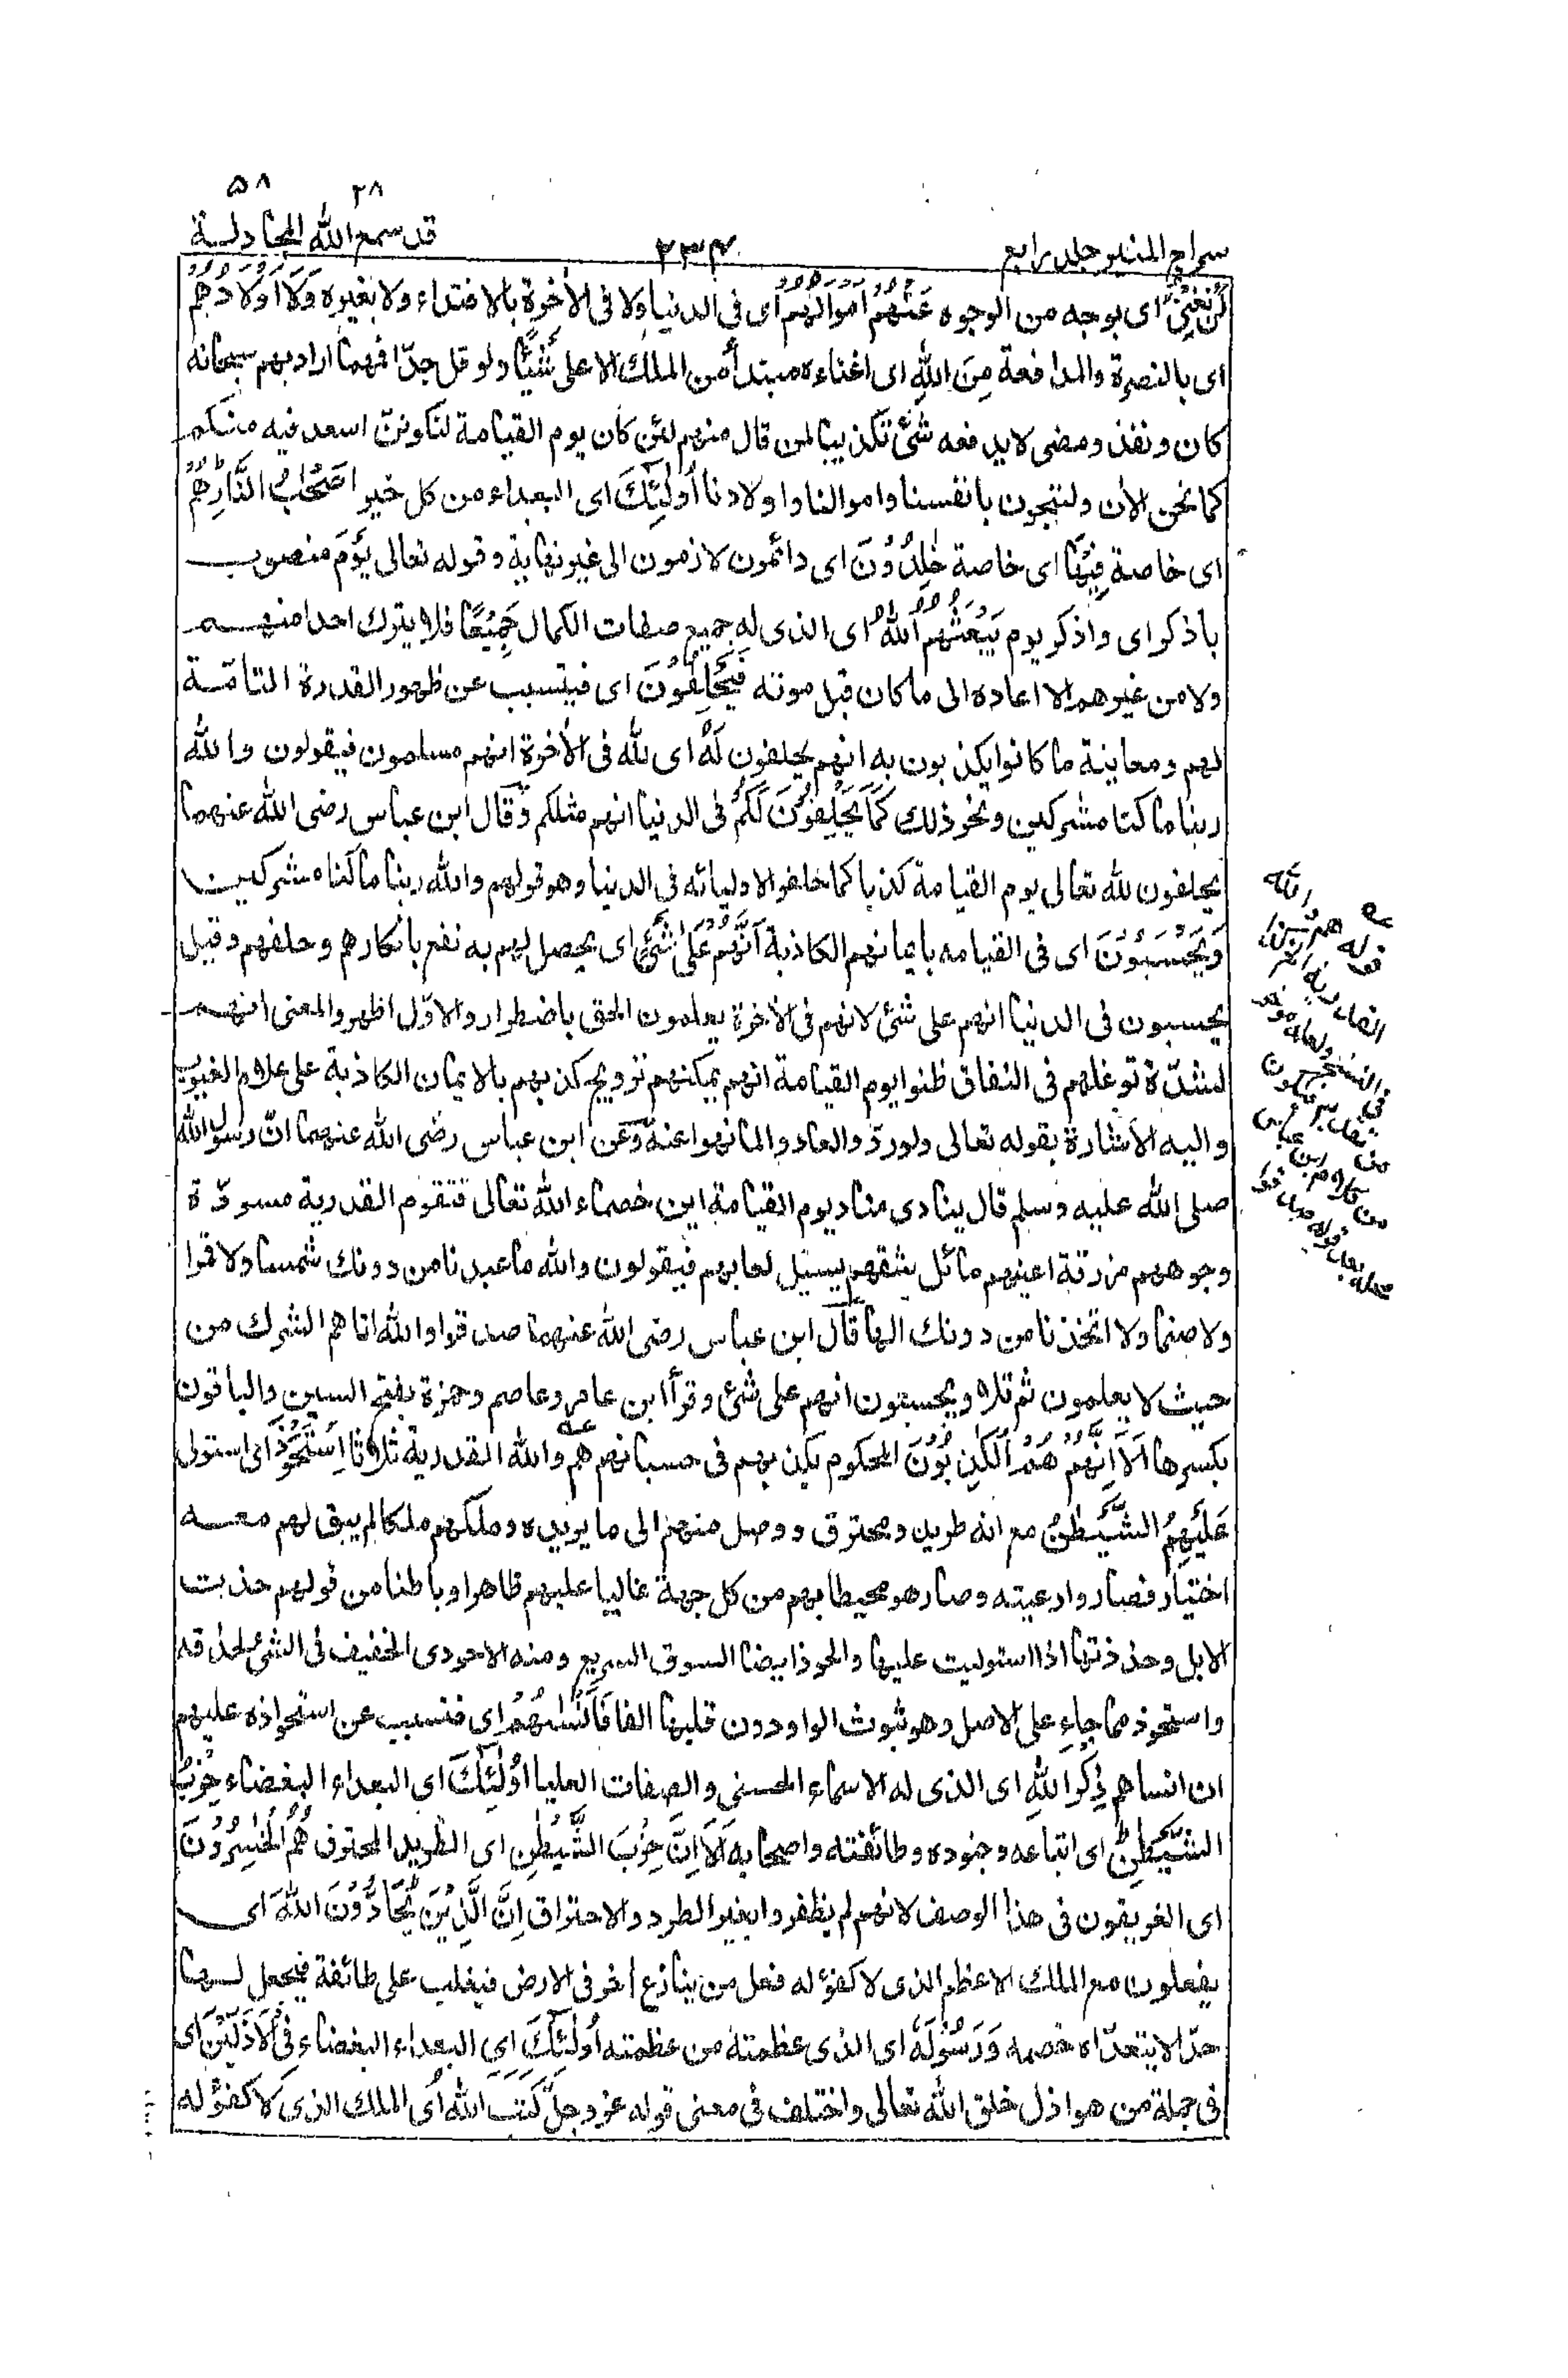 ٢٨ ٥٨
سراج المنير جلد رابع ٢٣٤ قد سمع الله المجادلة
لَنْ تُغْنِيَ اى بوجه من الوجوه عَنْهُمْ اَمْوَالُهُمْ اى فى الدنيا ولا فى الأخرة بالافتداء ولا بغيره وَلَا اَوْلَادُهُمْ
اى بالنصرة والمدافعة مِنَ اللّٰهِ اى اغناءه مبتدأ من الملك الاعلى شَيْئًا ولو قل جدّا فمهما اراد بهم سبحانه
كان ونفذ ومضى لا يدفعه شئ تكذيبا لمن قال منهم لئن كان يوم القيامة لنكوننّ اسعد فيه منكم
كما نحن الأن ولننجون بانفسنا واموالنا واولادنا اُولٰٓئِكَ اى البعداء من كل خير اَصْحٰبُ النَّارِ هُمْ
اى خاصة فِيْهَا اى خاصة خٰلِدُوْنَ اى دائمون لازمون الى غير نهاية وقوله تعالى يَوْمَ منصوب
باذكر اى واذكر يوم يَبْعَثُهُمُ اللّٰهُ اى الذى له جميع صفات الكمال جَمِيْعًا فلا يترك احدا منهم
ولا من غيرهم الا اعاده الى ما كان قبل موته فَيَحْلِفُوْنَ اى فيتسبب عن ظهور القدرة التامّة
لهم ومعاينة ما كانوا يكذبون به انهم يحلفون لَهٗ اى لله فى الأخرة انهم مسلمون فيقولون والله
ربنا ما كنا مشركين ونحو ذلك كَمَا يَحْلِفُوْنَ لَكُمْ فى الدنيا انهم مثلكم وقال ابن عباس رضى الله عنهما
يحلفون لله تعالى يوم القيامة كذبا كما حلفوا لاوليائه فى الدنيا وهو قولهم والله ربنا ما كنا مشركين
وَيَحْسَبُوْنَ اى فى القيامه بايمانهم الكاذبة اَنَّهُمْ عَلٰى شَيْءٍ اى يحصل لهم به نفع بانكارهم وحلفهم وقيل
يحسبون فى الدنيا انهم على شئ لانهم فى الأخرة يعلمون الحق باضطرار والاوّل اظهر والمعنى انهم
لشدّة توغلهم فى النفاق ظنوا يوم القيامة انهم يمكنهم ترويج كذبهم بالايمان الكاذبة على علام الغيوب
واليه الأشارة بقوله تعالى ولو ردّوا لعادوا لما نهوا عنه وعن ابن عباس رضى الله عنهما انّ رسول الله
صلى الله عليه وسلم قال ينادى مناد يوم القيامة اين خصماء الله تعالى فتقوم القدرية مسودّة
وجوههم مزرقة اعينهم مائل شقهم يسيل لعابهم فيقولون والله ما عبدنا من دونك شمسا ولا قمرا
ولا صنما ولا اتخذنا من دونك الها قال ابن عباس رضى الله عنهما صدقوا والله اتاهم الشرك من
حيث لا يعلمون ثم تلا ويحسبون انهم على شئ وقرأ ابن عامر وعاصم وحمزة بفتح السين والباقون
بكسرها اَلَآ اِنَّهُمْ هُمُ الْكٰذِبُوْنَ المحكوم بكذبهم فى حسبانهم هم والله القدرية ثلاثا اِسْتَحْوَذَ اى استولى
عَلَيْهِمُ الشَّيْطٰنُ مع انه طريد ومحترق ووصل منهم الى ما يريده وملكهم ملكا لم يبق لهم معه
اختيار فصاروا رعيته وصار هو محيطا بهم من كل جهة غالبا عليهم ظاهرا وباطنا من قولهم حذبت
الابل وحذذتها اذا استوليت عليها والحوذ ايضا السوق السريع ومنه الاحوذى الخفيف فى الشئ لحذقه
واستحوذ مما جاء على الاصل وهو ثبوث الواو دون قلبها الفا فَاَنْسٰىهُمْ اى فتسبب عن استحواذه عليهم
ان انساهم ذِكْرَ اللّٰهِ اى الذى له الاسماء الحسنى والصفات العليا اُولٰٓئِكَ اى البعداء البغضاء حِزْبُ
الشَّيْطٰنِ اى اتباعه وجنوده وطائفته واصحابه اَلَآ اِنَّ حِزْبَ الشَّيْطٰنِ اى الطريد المحترق هُمُ الْخٰسِرُوْنَ
اى الغريقون فى هذا الوصف لانهم لم يظفروا بغير الطرد والاحتراق اِنَّ الَّذِيْنَ يُحَآدُّوْنَ اللّٰهَ اى
يفعلون مع الملك الاعظم الذى لا كفؤ له فعل من ينازع أخر فى الارض فيغلب على طائفة فيجعل لها
حدّا لا يتعدّاه خصمه وَرَسُوْلَهٗ اى الذى عظمته من عظمته اُولٰٓئِكَ اى البعداء البغضاء فِى الْاَذَلِّيْنَ اى
فى جملة من هو اذل خلق الله تعالى واختلف فى معنى قوله عز وجلّ كَتَبَ اللّٰهُ اى الملك الذى لا كفؤ له
عه
قوله هم والله
القدرية